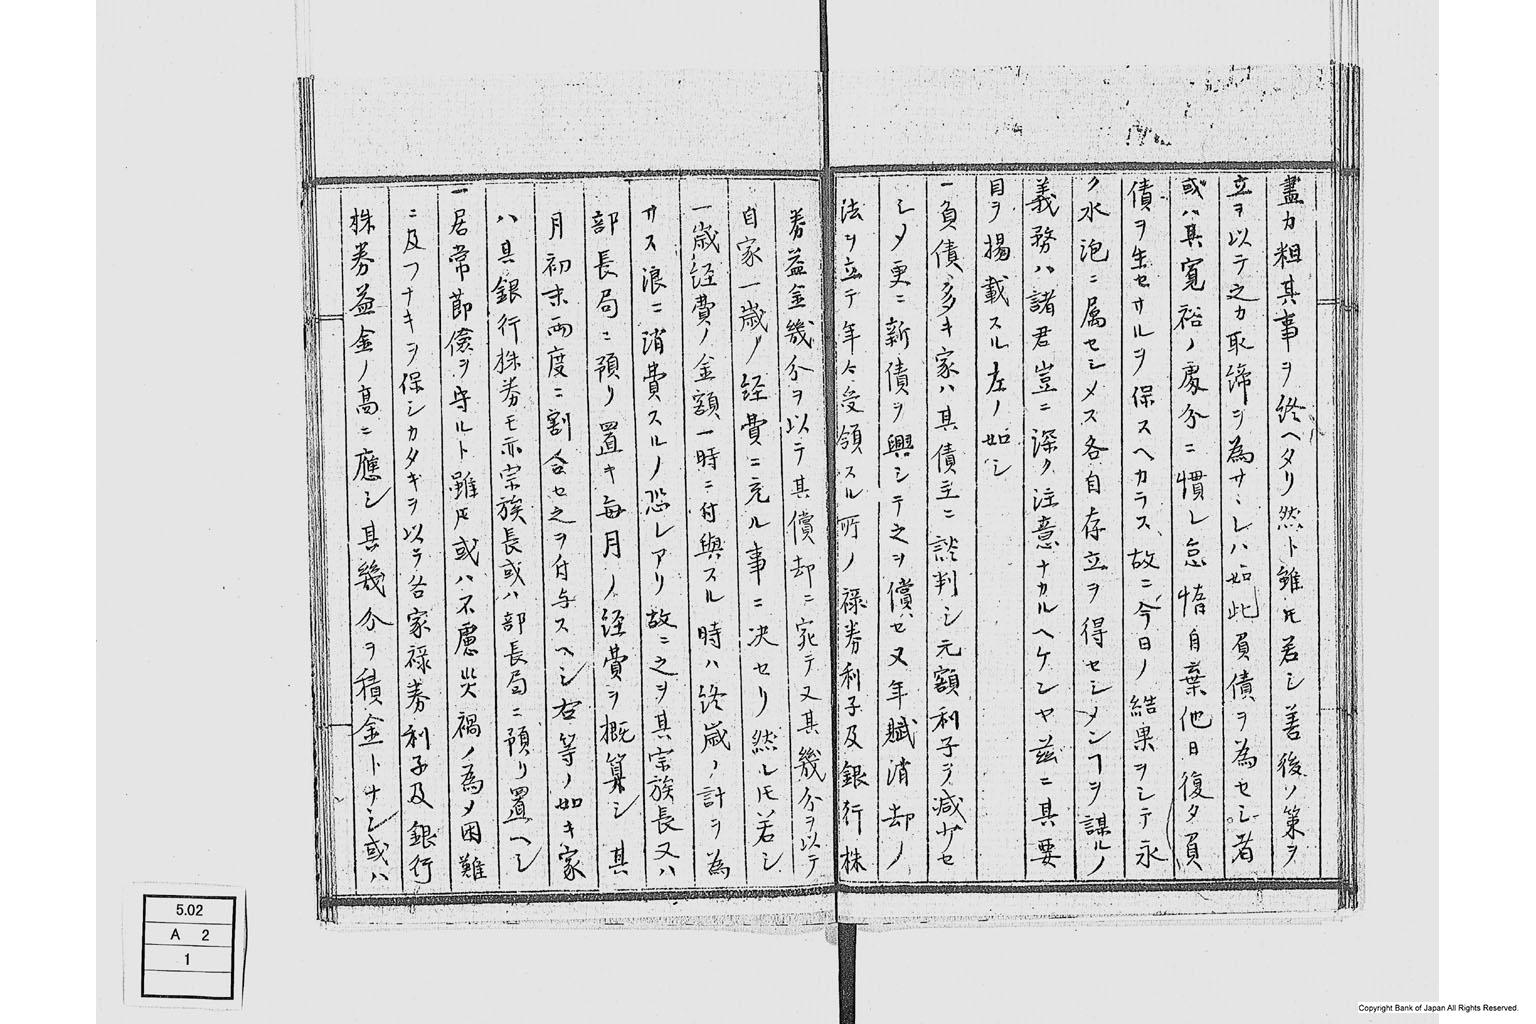 盡力粗其事ヲ終ヘタリ然ト雖𪜈若シ善後ノ策ヲ
立ヲ以テ之カ取締ヲ為サヽレハ如此負債ヲ為セシ者
或ハ其寛裕ノ處分ニ慣レ怠惰自棄他日復タ負
債ヲ生セサルヲ保スヘカラス故ニ今日ノ結果ヲシテ永
ク水泡ニ属セシメス各自存立ヲ得セシメンヿヲ謀ルノ
義務ハ諸君豈ニ深ク注意ナカルヘケンヤ茲ニ其要
目ヲ掲載スル左ノ如シ
一負債多キ家ハ其債主ニ談判シ元額利子ヲ減少セ
シメ更ニ新債ヲ興シテ之ヲ償ヒ又年賦消却ノ
法ヲ立テ年々受領スル所ノ禄券利子及銀行株
券益金幾分ヲ以テ其償却ニ宛テ又其幾分ヲ以テ
自家一歳ノ経費ニ充ル事ニ決セリ然レ𪜈若シ
一歳経費ノ金額一時ニ付與スル時ハ終歳ノ計ヲ為
サス浪ニ消費スルノ恐レアリ故ニ之ヲ其宗族長又ハ
部長局ニ預リ置キ毎月ノ経費ヲ概算シ其
月初末両度ニ割合セ之ヲ付与スヘシ右等ノ如キ家
ハ其銀行株券モ亦宗族長或ハ部長局ニ預リ置ヘシ
一居常節儉ヲ守ルト雖𪜈或ハ不慮災禍ノ為メ困難
ニ及フナキヲ保シカタキヲ以テ各家禄券利子及銀行
株券益金ノ高ニ應シ其幾分ヲ積金トナシ或ハ
5.02
A 2
1
Copyright Bank of Japan All Rights Reserved.